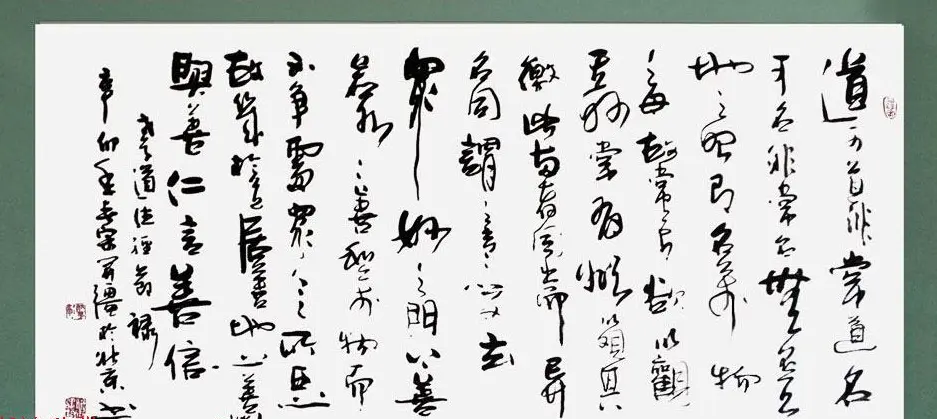 道可道非常道名
可名非常名無名天
地之始有名萬物
之母故常無欲以觀
其妙常有欲以觀其
徼此兩者同出而異
名同謂之玄之又玄
眾妙之門上善
若水水善利萬物而
不争處眾人之所惡
故幾於道居善地心善
與善仁言善信
老子道德經節錄
辛卯年 於北京